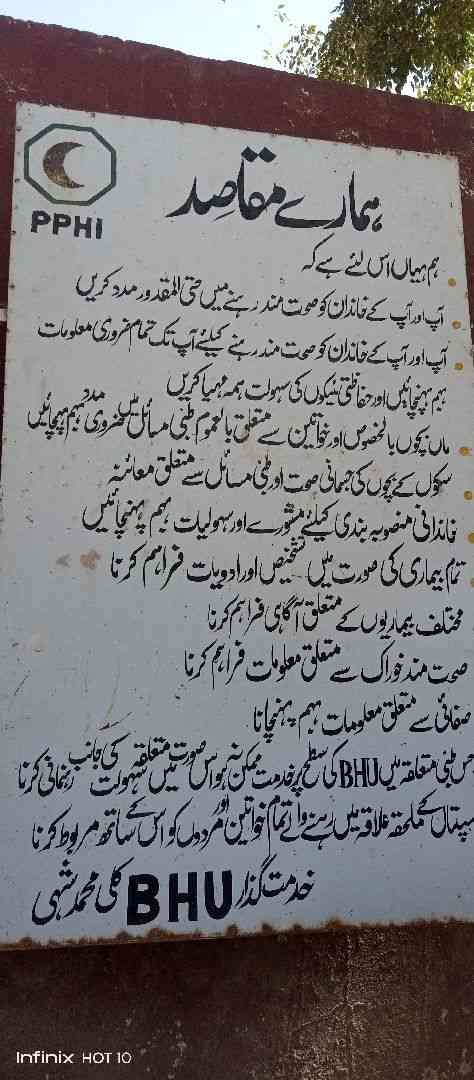 PPHI
ہمارے مقاصد
ہم یہاں اس لئے ہے کہ
آپ اور آپ کے خاندان کو صحت مند رہنے میں حتی المقدور مدد کریں
آپ اور آپ کے خاندان کو صحت مند رہنے کیلئے آپ تک تمام ضروری معلومات
بہم پہنچائیں اور حفاظتی ٹیکوں کی سہولت ہمہ مہیا کریں
ماں بچوں بالخصوص اور خواتین سے متعلق بالعموم طبی مسائل میں ضروری مدد بہم پہنچائیں
سکول کے بچوں کی جسمانی صحت اور طبی مسائل سے متعلق معائنہ
خاندانی منصوبہ بندی کیلئے مشورے اور سہولیات بہم پہنچائیں
تمام بیماری کی صورت میں تشخیص اور ادویات فراہم کرنا
مختلف بیماریوں کے متعلق آگاہی فراہم کرنا
صحت مند خوراک سے متعلق معلومات فراہم کرنا
صفائی سے متعلق معلومات بہم پہنچانا
جس طبی متعلقہ میں BHU کی سطح پر خدمت ممکن نہ ہو اس صورت میں متعلقہ سہولت کی جانب رہنمائی کرنا
ہسپتال کے ملحقہ علاقہ میں رہنے والے تمام خواتین اور مردوں کو اس کے ساتھ مربوط کرنا
خدمت گذار BHU کلی محمد شہی
Infinix HOT 10